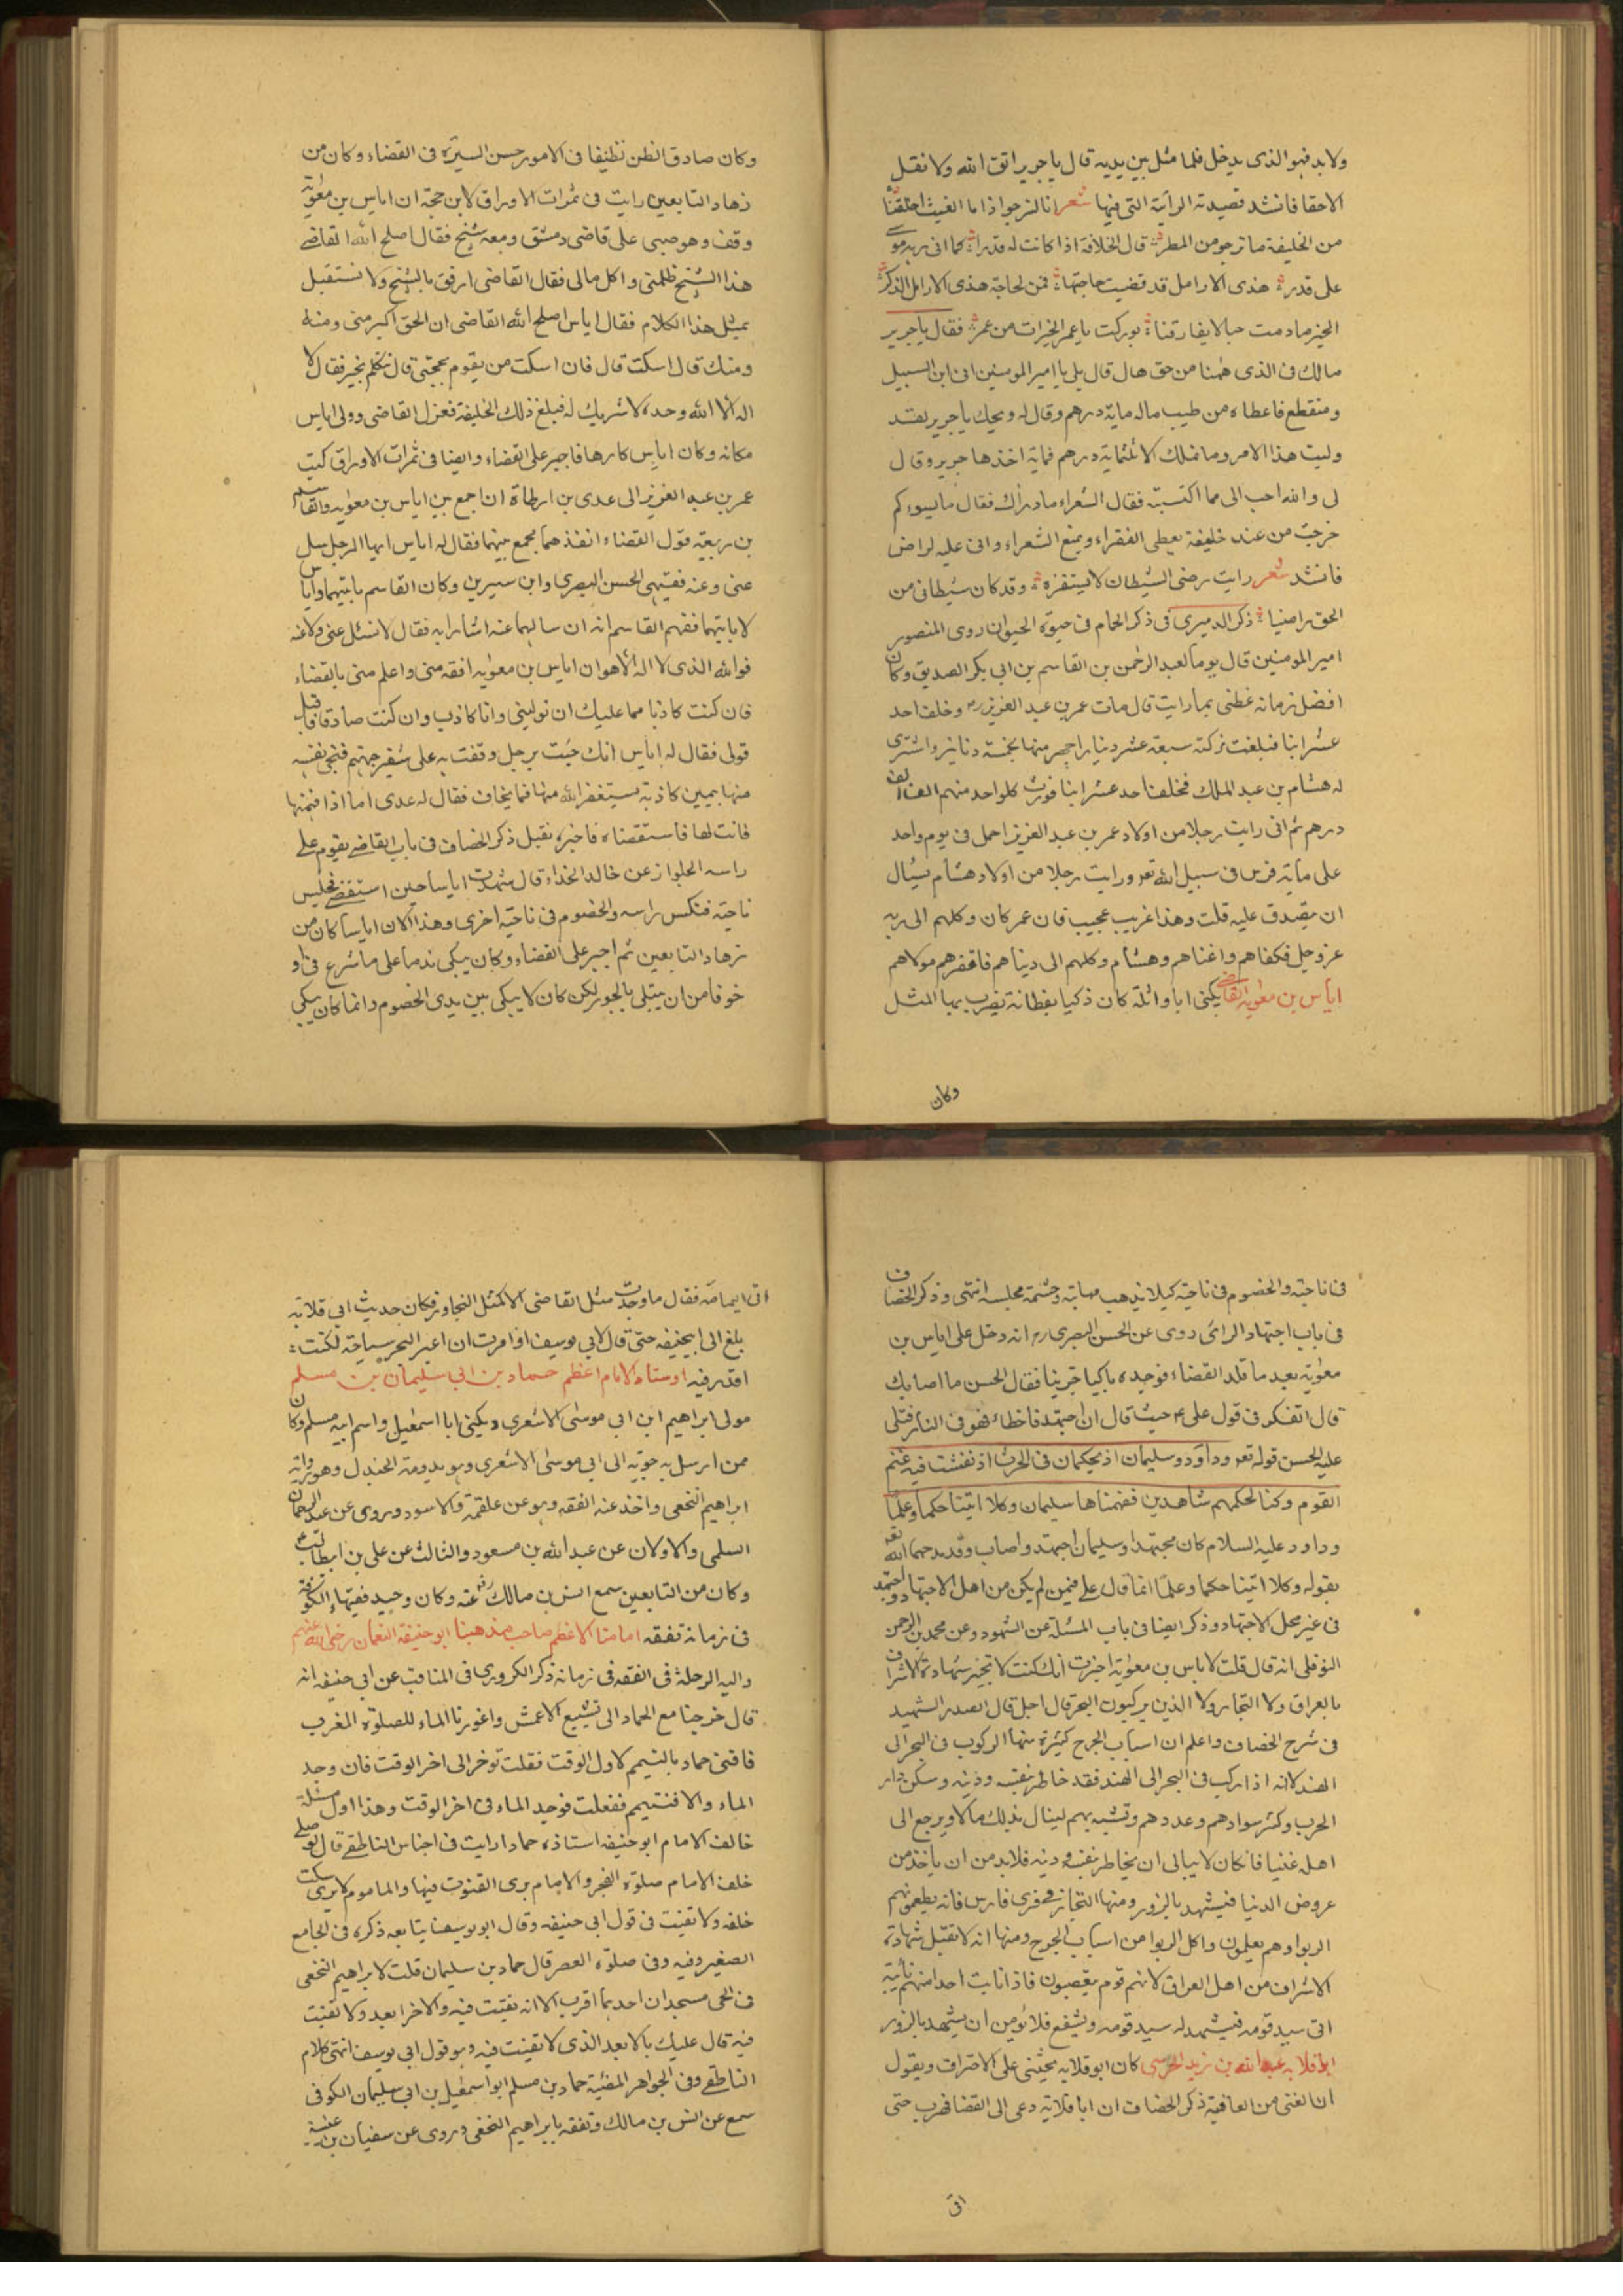 ولا بد فهو الذى يدخل فلما مثل بين يديه قال يا جرير اتق الله ولا تقل
الا حقا فانشد قصيدته الرائية التى فيها شعر انا لنرجو اذا ما الغيث اخلفنا
من الخليفة ما نرجو من المطر قال الخلافة اذا كانت له قدرا كما اتى ربه موسى
على قدر هذى الارامل قد قضيت حاجتها فمن لحاجة هذى الارامل الذكر
الخير ما دمت حيا لا يفارقنا بوركت يا عمر الخيرات من عمر فقال يا جرير
مالك فى الذى ههنا من حق هال قال بلى يا امير المومنين انى ابن السبيل
ومنقطع فاعطاه من طيب ماله ماية درهم وقال له ويحك يا جرير لقد
وليت هذا الامر وما نملك الا ثلثماية درهم فماية اخذها جرير وقال
لى والله احب الى مما اكتسبته فقال الشعراء ما وراك فقال ما يسوءكم
خرجت من عند خليفة يعطى الفقراء ويمنع الشعراء وانى عليه لراض
فانشد شعر رايت رضى الشيطان لا يستفزه وقد كان شيطانى من
الحق راضيا ذكر الدميرى فى ذكر الحمام فى حيوة الحيوان روى المنصور
امير المومنين قال يوما لعبد الرحمن بن القاسم بن ابى بكر الصديق وكان
افضل زمانه عظنى بما رايت قال مات عمر بن عبد العزيز ره وخلف احد
عشر ابنا فبلغت تركته سبعة عشر دينارا جهز منها بخمسة دنانير واشترى
له هشام بن عبد الملك فخلف احد عشر ابنا فورث كل واحد منهم الف الف
درهم ثم انى رايت رجلا من اولاد عمر بن عبد العزيز احمل فى يوم واحد
على مأية فرس فى سبيل الله تعه ورايت رجلا من اولاد هشام يسال
ان يصدق عليه قلت وهذا غريب عجيب فان عمر كان وكلهم الى ربه
عز وجل فكفاهم واغناهم وهشام وكلهم الى دنياهم فافقرهم مولاهم
اياس بن معوية القاضى يكنى ابا واثلة كان ذكيا بفطانة يضرب بها المثل
وكان
وكان صادق الظن نظيفا فى الامور حسن السيرة فى القضاء وكان من
زهاد التابعين رايت فى ثمرات الاوراق لابن حجة ان اياس بن معوية
وقف وهو صبى على قاضى دمشق ومعه شيخ فقال اصلح الله القاضى
هذا الشيخ ظلمنى واكل مالى فقال القاضى ارفق بالشيخ ولا تستقبل
بمثل هذا الكلام فقال اياس اصلح الله القاضى ان الحق اكبر منى ومنه
ومنك قال اسكت قال فان اسكت من يقوم بحجتى قال تكلم بخير فقال لا
اله الا الله وحده لا شريك له فبلغ ذلك الخليفة فعزل القاضى وولى اياس
مكانه وكان اياس كارها فاجبر على القضاء وايضا فى ثمرات الاوراق كتب
عمر بن عبد العزيز الى عدى بن ارطاة ان اجمع بين اياس بن معوية والقاسم
بن ربيعة فول القضاء انفذهما فجمع بينهما فقال له اياس ايها الرجل سل
عنى وعنه فقيهى الحسن البصرى وابن سيرين وكان القاسم ياتيهما واياس
لا ياتيهما ففهم القاسم انه ان سالهما عنه اشارا به فقال لا تسئل عنى ولا عنه
فوالله الذى لا اله الا هو ان اياس بن معوية افقه منى واعلم منى بالقضاء
فان كنت كاذبا مما عليك ان تولينى وانا كاذب وان كنت صادقا فاقبل
قولى فقال له اياس انك جئت برجل وقفت به على شفير جهنم فنجى نفسه
منها بيمين كاذبة يستغفر الله منها فما يخاف فقال له عدى اما اذا فهمتها
فانت لها فاستقضاه فاخبره بقبل ذكر الخصاف فى باب القاضى يقوم على
راسه الجلواز عن خالد الحذاء قال شهدت اياسا حين استقضى فجلس
ناحية فنكس راسه والخصوم فى ناحية اخرى وهذا لان اياسا كان من
زهاد التابعين ثم اجبر على القضاء وكان يبكى ندما على ما شرع فيه او
خوفا من ان يبتلى بالجور لكن كان لا يبكى بين يدى الخصوم وانما كان يبكى
فى ناحية والخصوم فى ناحية كيلا يذهب مهابته وحشمة مجلسه انتهى وذكر الخصاف
فى باب اجتهاد الرائى روى عن الحسن البصرى ره انه دخل على اياس بن
معوية بعد ما قلد القضاء فوجده باكيا حزينا فقال الحسن ما اصابك
قال اتفكر فى قول على ع حيث قال ان اجتهد فاخطاء فهو فى النار فتلى
عليه الحسن قوله تعه وداود وسليمان اذ يحكمان فى الحرث اذ نفشت فيه غنم
القوم وكنا لحكمهم شاهدين ففهمناها سليمان وكلا اتينا حكما وعلما
وداود عليه السلام كان مجتهدا وسليمان اجتهد واصاب وقد مدحهما الله تعه
بقوله وكلا اتينا حكما وعلما انما قال على فيمن لم يكن من اهل الاجتهاد واجتهد
فى غير محل الاجتهاد وذكر ايضا فى باب المسئلة عن الشهود وعن محمد بن الرحمن
النوفلى انه قال قلت لاياس بن معوية اخبرت انك كنت لا تجيز شهادة الاشراف
بالعراق ولا التجار ولا الذين يركبون البحر قال اجل قال الصدر الشهيد
فى شرح الخصاف واعلم ان اسباب الجرح كثيرة منها الركوب فى البحر الى
الهند لانه اذا ركب فى البحر الى الهند فقد خاطر بنفسه ودينه وسكن دار
الحرب وكثر سوادهم وعددهم وتشبه بهم لينال بذلك مالا ويرجع الى
اهله غنيا فان كان لا يبالى ان يخاطر بنفسه ودينه فلا بد من ان ياخذ من
عروض الدنيا فيشهد بالزور ومنها التجار فى قرى فارس فانه يطعمونهم
الربوا وهم يعلمون واكل الربوا من اسباب الجرح ومنها انه لا تقبل شهادة
الاشراف من اهل العراق لانهم قوم يتعصبون فاذا نابت احدا منهم نائبة
اتى سيد قومه فيشهد له سيد قومه ويشفع فلا يؤمن ان يشهد بالزور
ابو قلابه عبد الله بن زيد الجرمى كان ابو قلابه يحثنى على الاحتراف ويقول
ان الغنى من العافية ذكر الخصاف ان ابا قلابة دعى الى القضا فهرب حتى
اتى
اتى اليمامة فقال ما وجدت مثل القاضى الا كمثل فكان حديث ابى قلابه
بلغ الى ابيحنيفه حتى قال لابى يوسف اذا امرت ان اعبر البحر سباحة لكنت
اقدر فيه اوستاد الامام اعظم حماد بن ابى سليمان بن مسلم
مولى ابراهيم ابن ابى موسى الاشعرى ويكنى ابا اسمعيل واسم ابيه مسلم وكان
ممن ارسل به معوية الى ابى موسى الاشعرى وهو بدومة الجندل وهو رواية
ابراهيم النخعى واخذ عنه الفقه وهو عن علقمة والاسود وروى عن عبد الرحمان
السلمى والاولان عن عبد الله بن مسعود والثالث عن على بن ابيطالب
وكان من التابعين سمع انس بن مالك رضى عنه وكان وحيد فقيها الكوفة
فى زمانه تفقه امامنا الاعظم صاحب مذهبنا ابو حنيفة النعمان رضى الله عنهم
واليه الرحلة فى الفقه فى زمانه ذكر الكرورى فى المناقب عن ابى حنيفه انه
قال خرجنا مع الحماد الى تشييع الاعمش واعوزنا الماء للصلوة المغرب
فافتى حماد بالتيمم لاول الوقت فقلت توخر الى اخر الوقت فان وجد
الماء والا فتتيمم ففعلت فوجد الماء فى اخر الوقت وهذا اول مسئلة
خالف الامام ابو حنيفه استاذه حماد ارايت فى اجناس الناطقى قال لو صلى
خلف الامام صلوة الفجر والامام يرى القنوت فيها والماموم لا يرى سكت
خلفه ولا تقنت فى قول ابى حنيفه وقال ابو يوسف يتابعه ذكره فى الجامع
الصغير وفيه وفى صلوة العصر قال حماد بن سليمان قلت لابراهيم النخعى
فى الحى مسجدان احدهما اقرب الا انه يقنت فيه والاخر ابعد ولا تقنت
فيه قال عليك بالابعد الذى لا تقنت فيه وهو قول ابى يوسف انتهى كلام
الناطقى وفى الجواهر المضيئة حماد بن مسلم ابو اسمعيل بن ابى سليمان الكوفى
سمع عن انس بن مالك وتفقه بابراهيم النخعى وروى عن سفيان بن عيينة